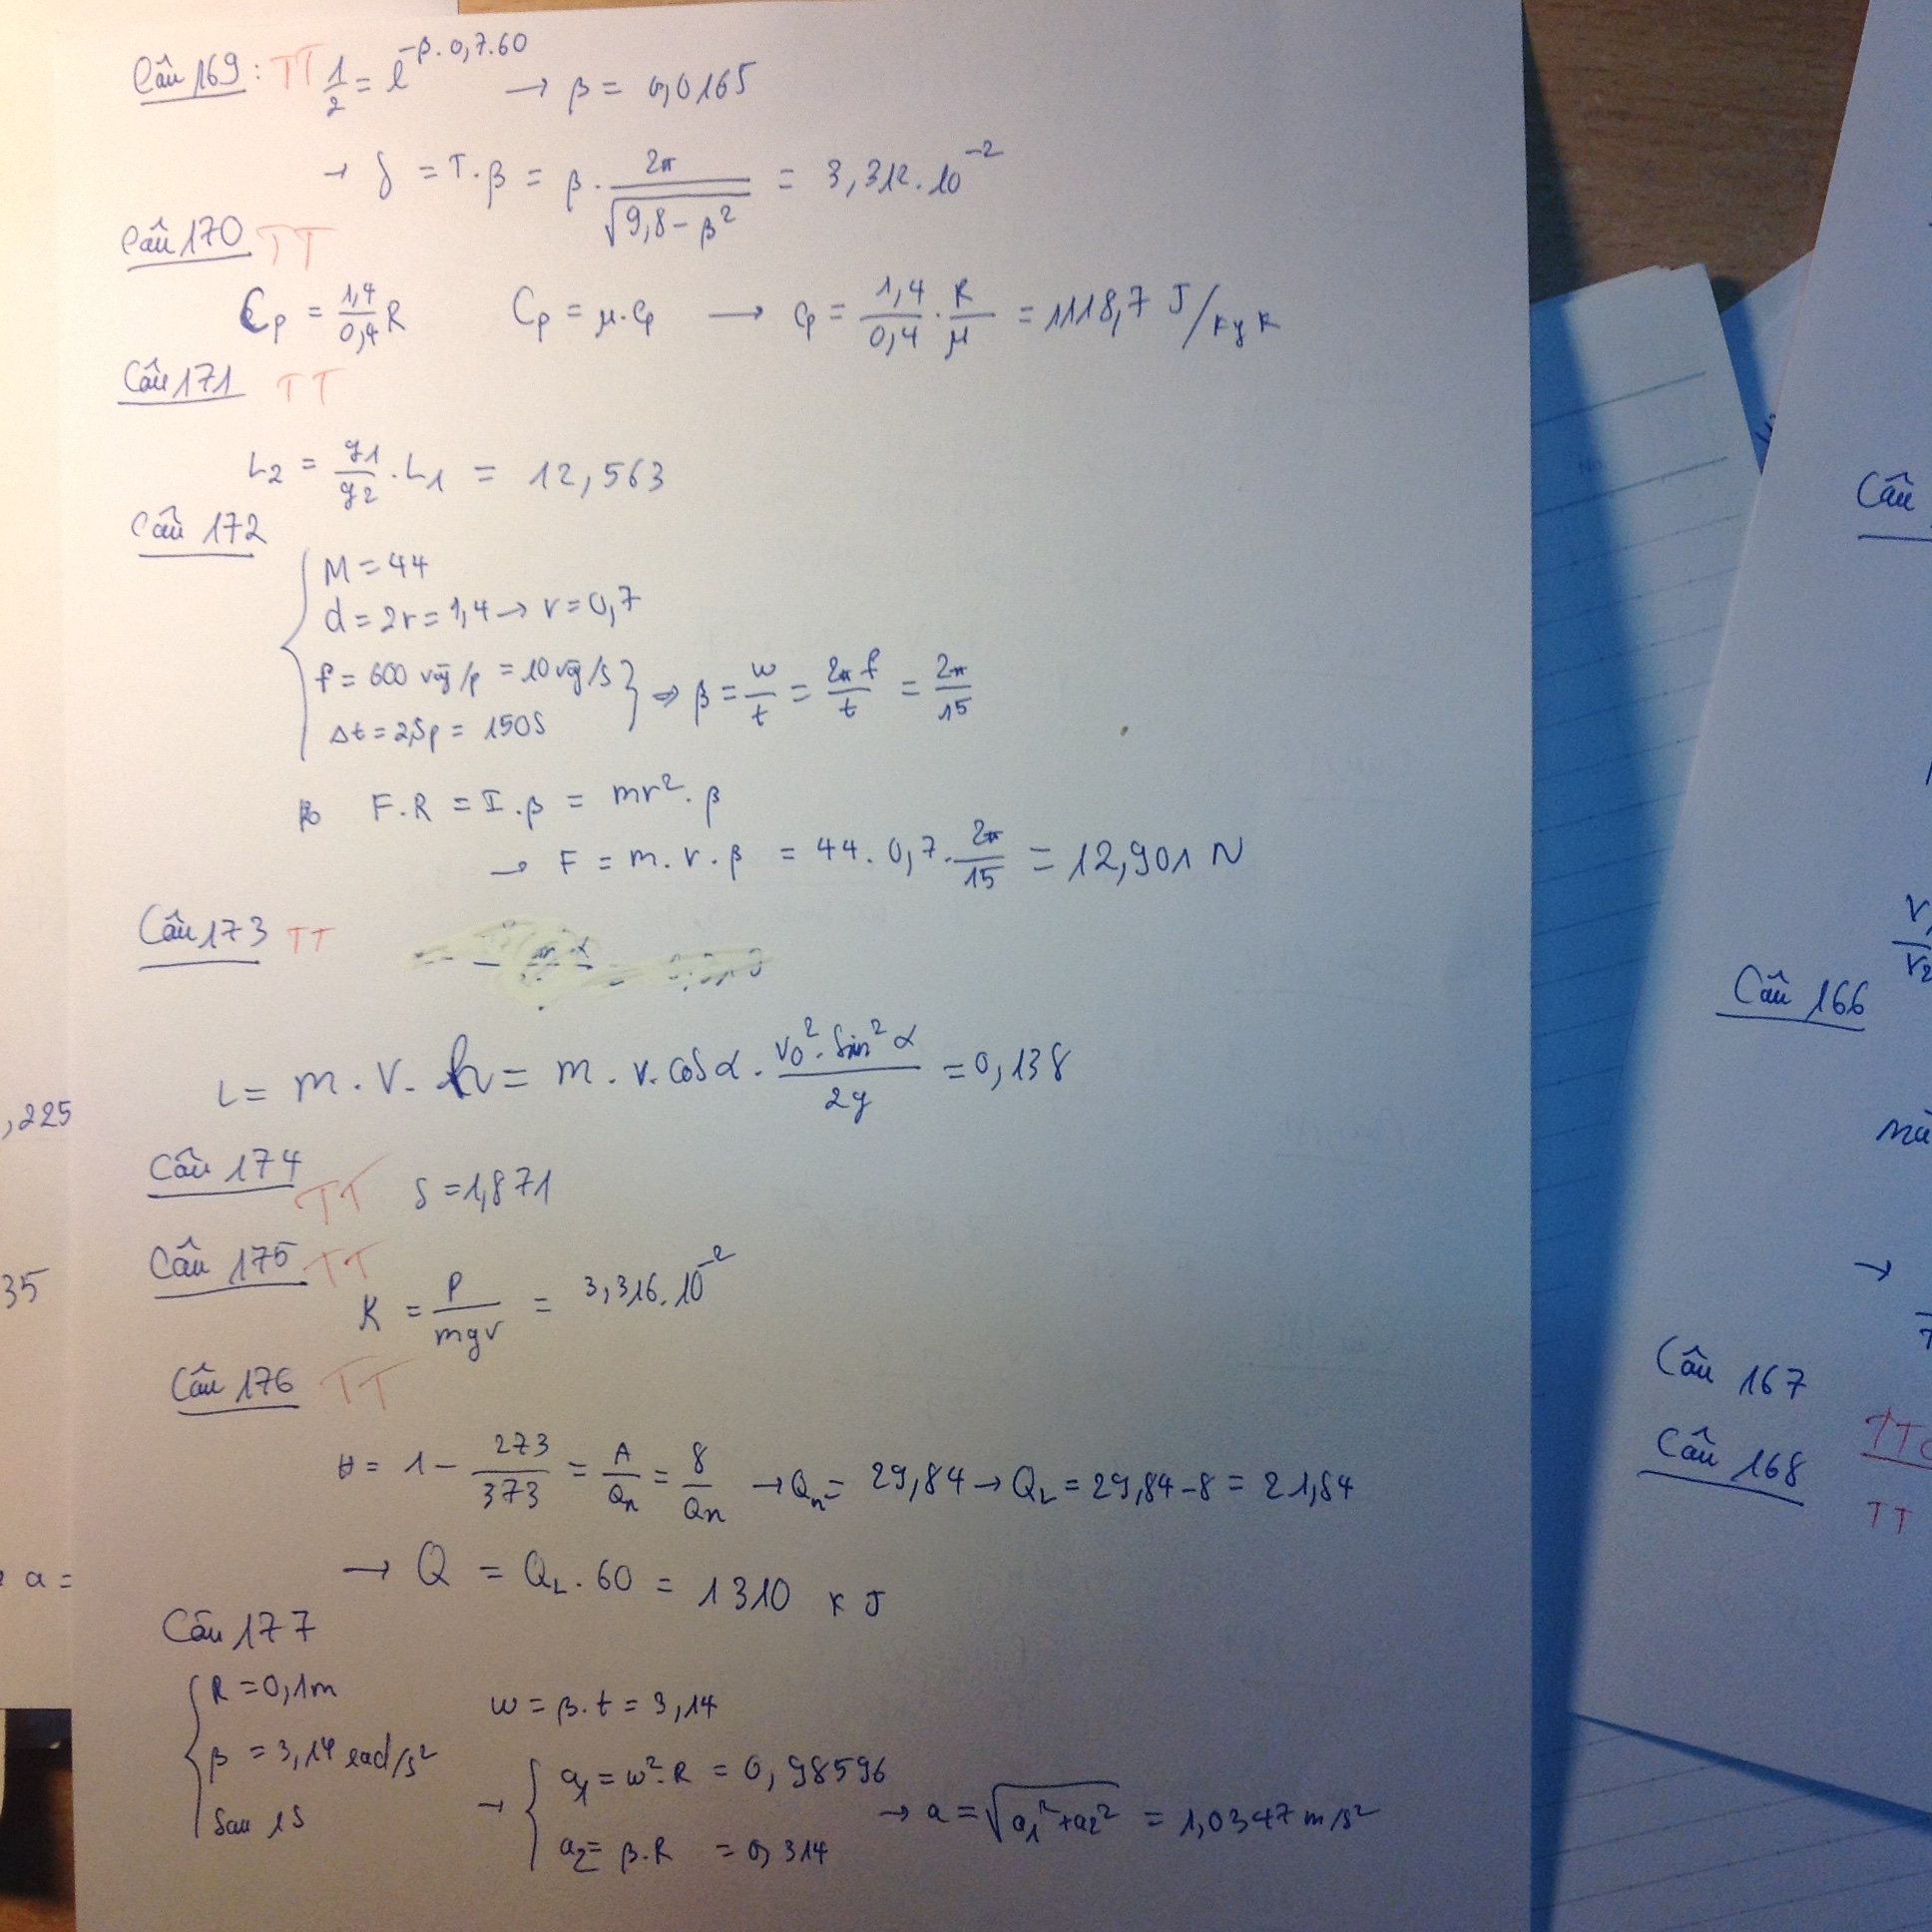 Câu 169: TT 1/2 = e^(-β.0,7.60) → β = 0,0165
→ δ = T.β = β . 2π/√(9,8-β²) = 3,312.10^-2
Câu 170 TT
Cp = 1,4/0,4 R Cp = μ.cp → cp = 1,4/0,4 . R/μ = 1118,7 J/kgK
Câu 171 TT
L2 = g1/g2 . L1 = 12,563
Câu 172
M = 44
d = 2r = 1,4 → r = 0,7
f = 600 vòg/p = 10 vòg/s
Δt = 2,5p = 150s
⇒ β = w/t = 2πf/t = 2π/15
F.R = I.β = mr².β
→ F = m.r.β = 44. 0,7. 2π/15 = 12,901 N
Câu 173 TT
L = m.v.h = m.v.cosα. v0².sin²α/2g = 0,138
Câu 174 TT δ = 1,871
Câu 175 TT
K = P/mgv = 3,316.10^-2
Câu 176 TT
H = 1 - 273/373 = A/Qn = 8/Qn → Qn = 29,84 → QL = 29,84-8 = 21,84
→ Q = QL.60 = 1310 KJ
Câu 177
R = 0,1m
β = 3,14 rad/s²
Sau 1s
w = β.t = 3,14
→ a1 = w².R = 0,98596
a2 = β.R = 0,314
→ a = √(a1²+a2²) = 1,0347 m/s²
,225
35
a =
Câu
Câu 166
→
Câu 167
Câu 168
TT